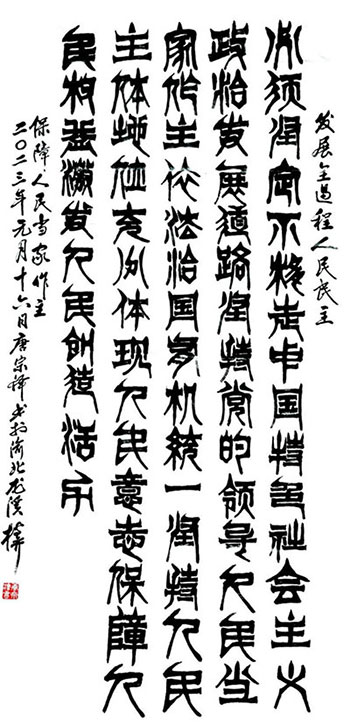 发展全过程人民民主
必须坚定不移走中国特色社会主义
政治发展道路坚持党的领导人民当
家作主依法治国有机统一坚持人民
主体地位充分体现人民意志保障人
民权益激发人民创造活力
保障人民当家作主
二〇二三年元月十六日唐宗书於渝北龙溪